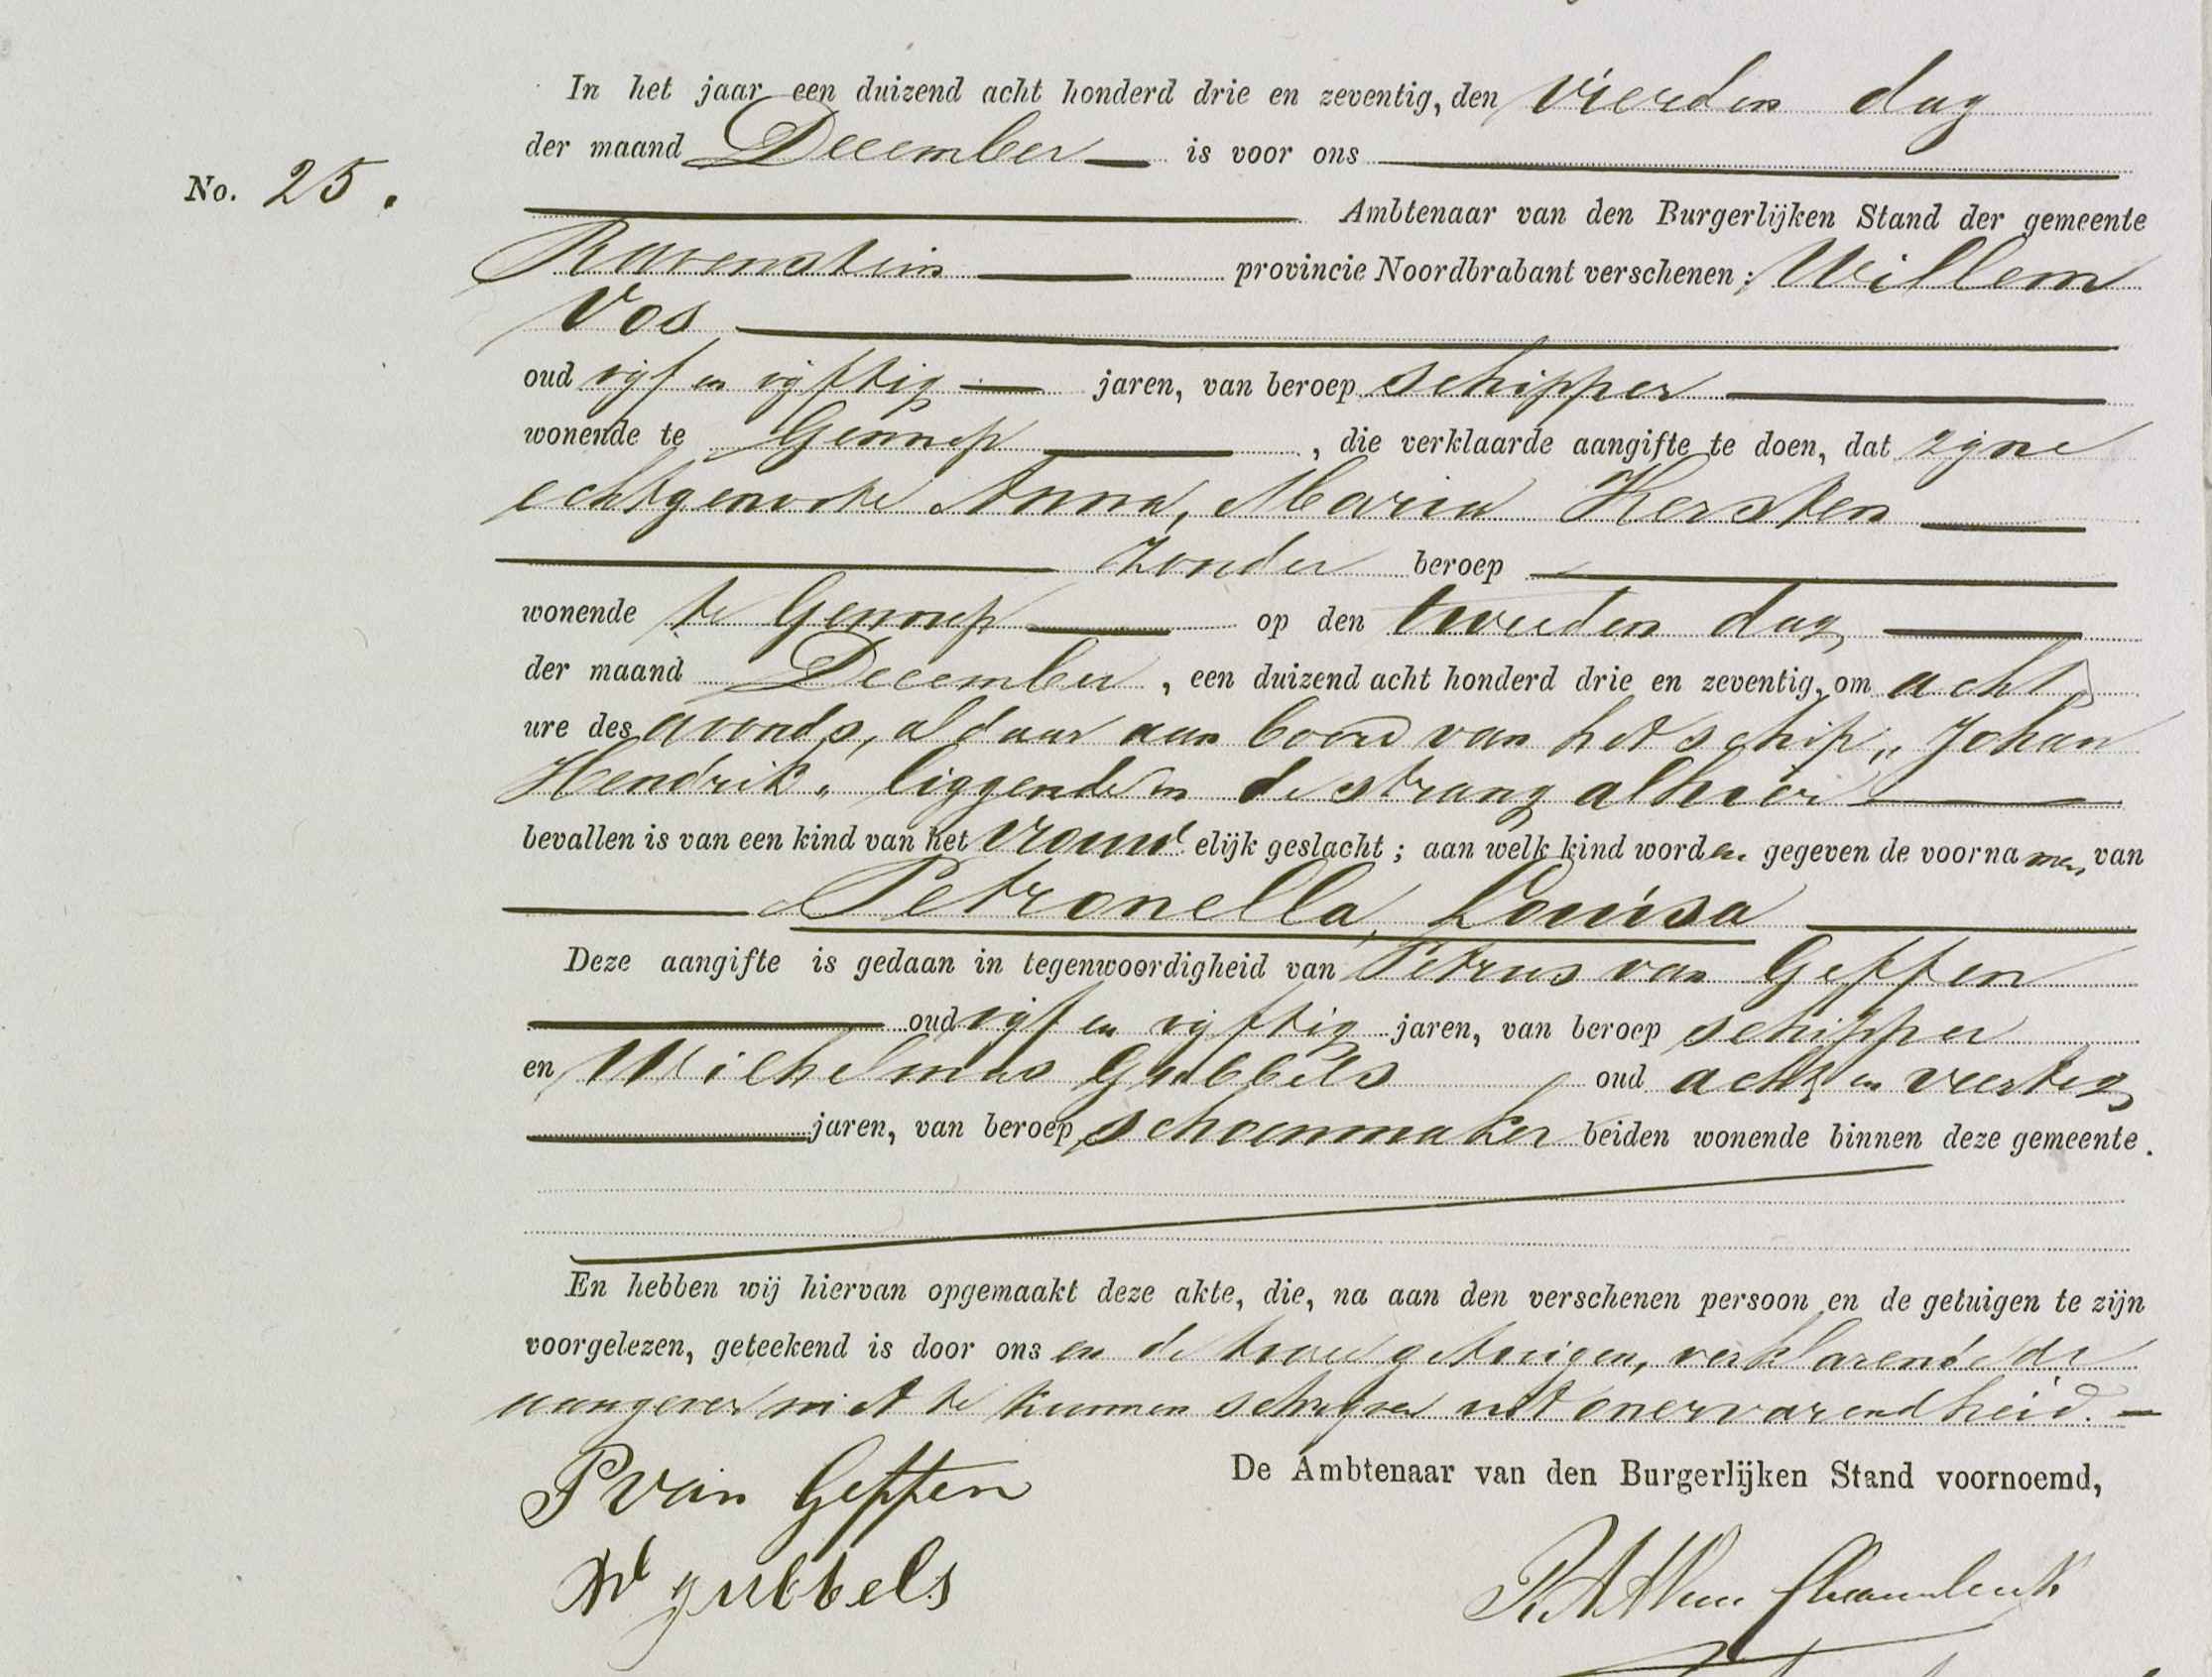 In het jaar een duizend acht honderd drie en zeventig, den vierden dag
der maand December is voor ons
No. 25.
Ambtenaar van den Burgerlijken Stand der gemeente
Ravenstein provincie Noordbrabant verschenen: Willem
Vos
oud vijf en vijftig jaren, van beroep schipper
wonende te Gennep, die verklaarde aangifte te doen, dat zijne
echtgenoote Anna, Maria Kersten
zonder beroep
wonende te Gennep op den tweeden dag
der maand December, een duizend acht honderd drie en zeventig, om acht
ure des avonds, aldaar aan boord van het schip „Johan
Hendrik" liggende in de strang alhier
bevallen is van een kind van het vrouwelijk geslacht; aan welk kind worden gegeven de voornamen van
Petronella, Louisa
Deze aangifte is gedaan in tegenwoordigheid van Petrus van Geffen
oud vijf en vijftig jaren, van beroep schipper
en Wilhelmus Gubbels oud acht en veertig
jaren, van beroep schoenmaker beiden wonende binnen deze gemeente.
En hebben wij hiervan opgemaakt deze akte, die, na aan den verschenen persoon en de getuigen te zijn
voorgelezen, geteekend is door ons en de twee getuigen, verklarende de
aangever niet te kunnen schrijven uit onervarendheid.
De Ambtenaar van den Burgerlijken Stand voornoemd,
P van Geffen
Wl gubbels